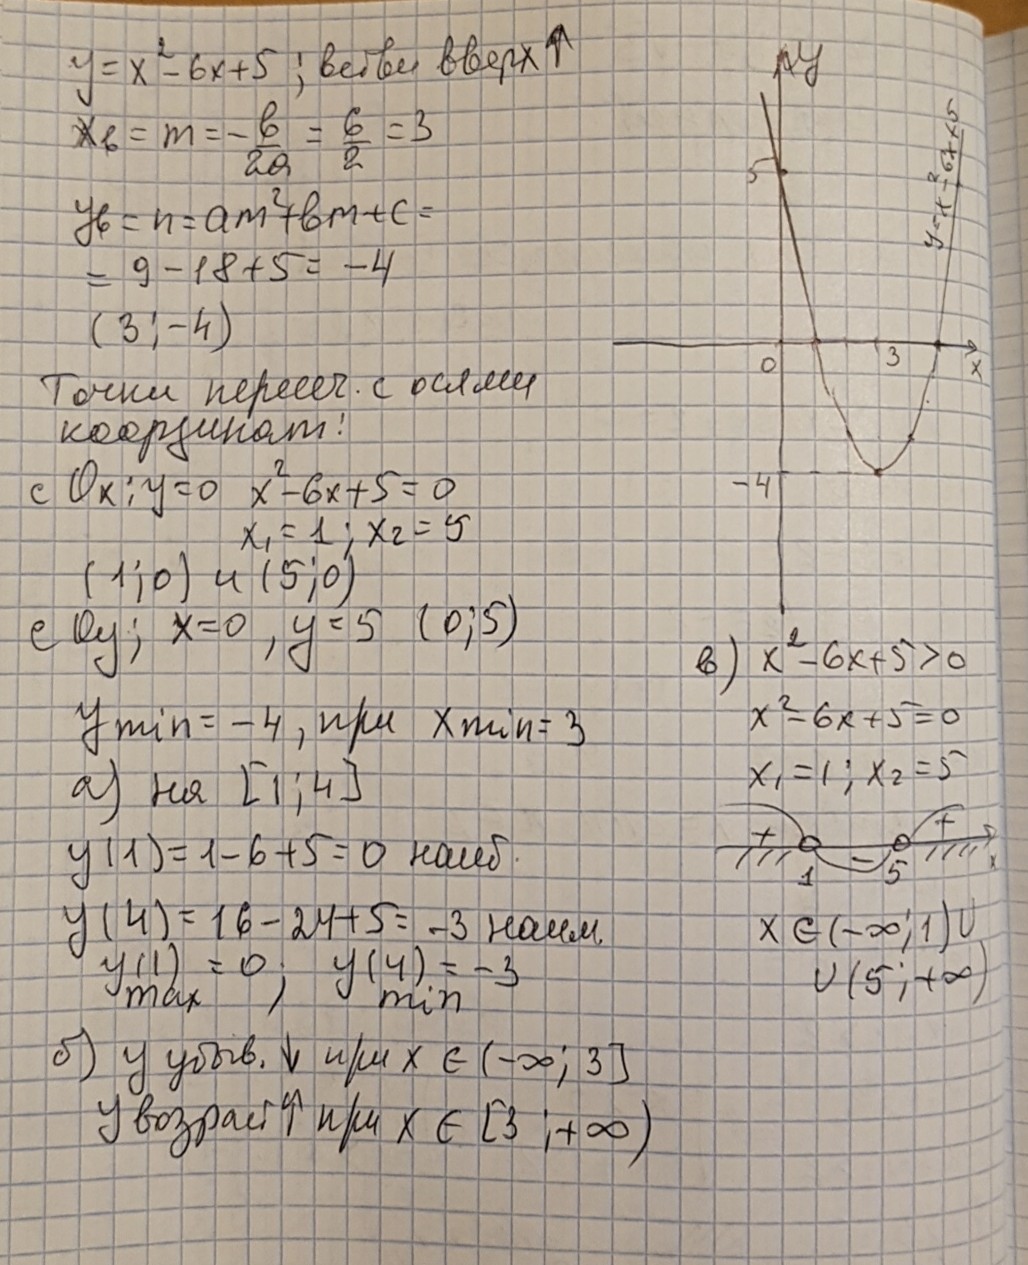 y=x²-6x+5 ; ветви вверх↑
xв = m = -b/2a = 6/2 = 3
yв = n = am²+bm+c =
= 9-18+5 = -4
(3;-4)
Точки пересеч. с осями
координат:
с Ox; y=0 x²-6x+5=0
x₁=1 ; x₂=5
(1;0) и (5;0)
с Oy; x=0, y=5 (0;5)
ymin = -4, при xmin=3
а) на [1;4]
y(1)=1-6+5=0 наиб.
y(4)=16-24+5=-3 наим.
y(1) = 0; y(4) = -3
max min
б) y убыв. ↓ при x ∈ (-∞; 3]
y возраст↑ при x ∈ [3 ;+∞)
y
5
y=x²-6x+5
0
3
x
-4
в) x²-6x+5>0
x²-6x+5=0
x₁=1; x₂=5
+ - +
1 5 x
x∈(-∞;1)∪
∪(5;+∞)